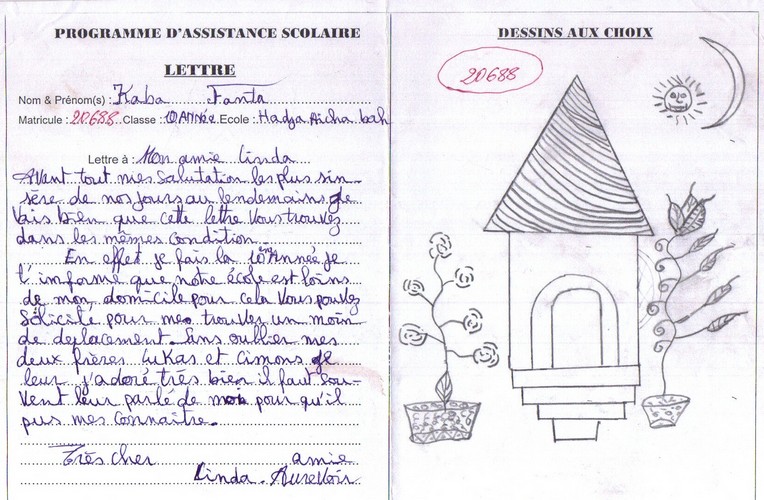 PROGRAMME D'ASSISTANCE SCOLAIRE
LETTRE
Nom & Prénom(s) : Kaba Fanta
Matricule : 20688 Classe : 10 ANNÉE Ecole : Hadja Aicha bah
Lettre à : Mon amie Linda
Avent tout mes Salutation les plus sin-
sère de nos jours au lendemains je
Vais bien que cette lettre Vous trouvez
dans les mêmes condition.
En effet je fais la 10ème Année je
t'informé que nôtre école est loins
de mon domicile pour cela Vous pouvez
Sollicité pour me trouvez un moin
de deplacement. Sans oublier mes
deux frères Lukas et Cimons je
leur j'adoré très bien il faut Sou-
Vent leur parlé de moi pour qu'il
puis mes connaître.
Très cher amie
Linda. Aurevoir
DESSINS AUX CHOIX
20688